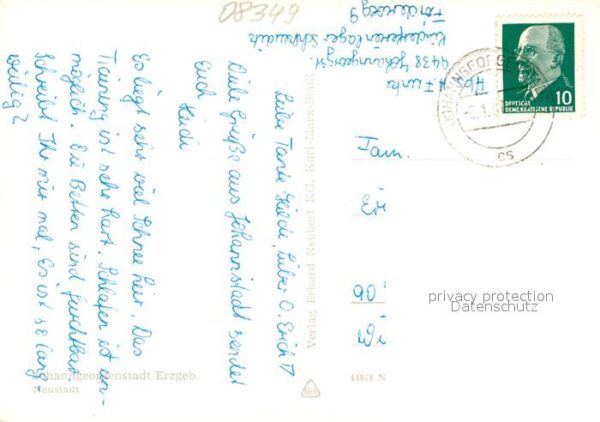 08349
Abs.
H. Funke
9438 Johanngeorgst.
Kinderferienlager Schreiadik
Försterweg 9
Liebe Tante Heide, lieber O. Erich!
Viele Grüße aus Johannstadt sendet
Euch Heidi
Es liegt sehr viel Schnee hier. Das
Training ist sehr hart. Schlafen ist un-
möglich. Die Betten sind furchtbar.
Schreibt Ihr mir mal, Es ist so lang-
weilig?
DEUTSCHE
DEMOKRATISCHE REPUBLIK
10
JOHANNGEORGENSTADT
Fam.
Eri
90
Wi
privacy protection
Datenschutz
Verlag Erhard Neubert KG, Karl-Marx-Stadt
Johanngeorgenstadt/Erzgeb.
Neustadt
44808 N